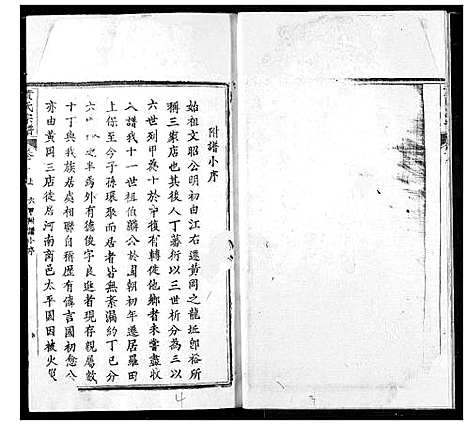 附譜小序
始祖文昭公明初由江右遷黃岡之龍坵郎裕所
稱三店也其後人丁蕃衍以三世析分為三以
六世列甲為十於中復有轉徙他鄉者未嘗盡收
入譜我十一世祖伯 公於國朝初年遷居羅田
上保至今子孫環聚而居者皆無紊漏約丁已分
六 之半焉外有德俊字良進者現存親屬數
十丁與我族居處相聯自稱歷有傳言國初愈公
亦由黃岡三店徙居河南商邑太平園因被火
氏宗譜
卷 上
六甲附譜小序
4
3